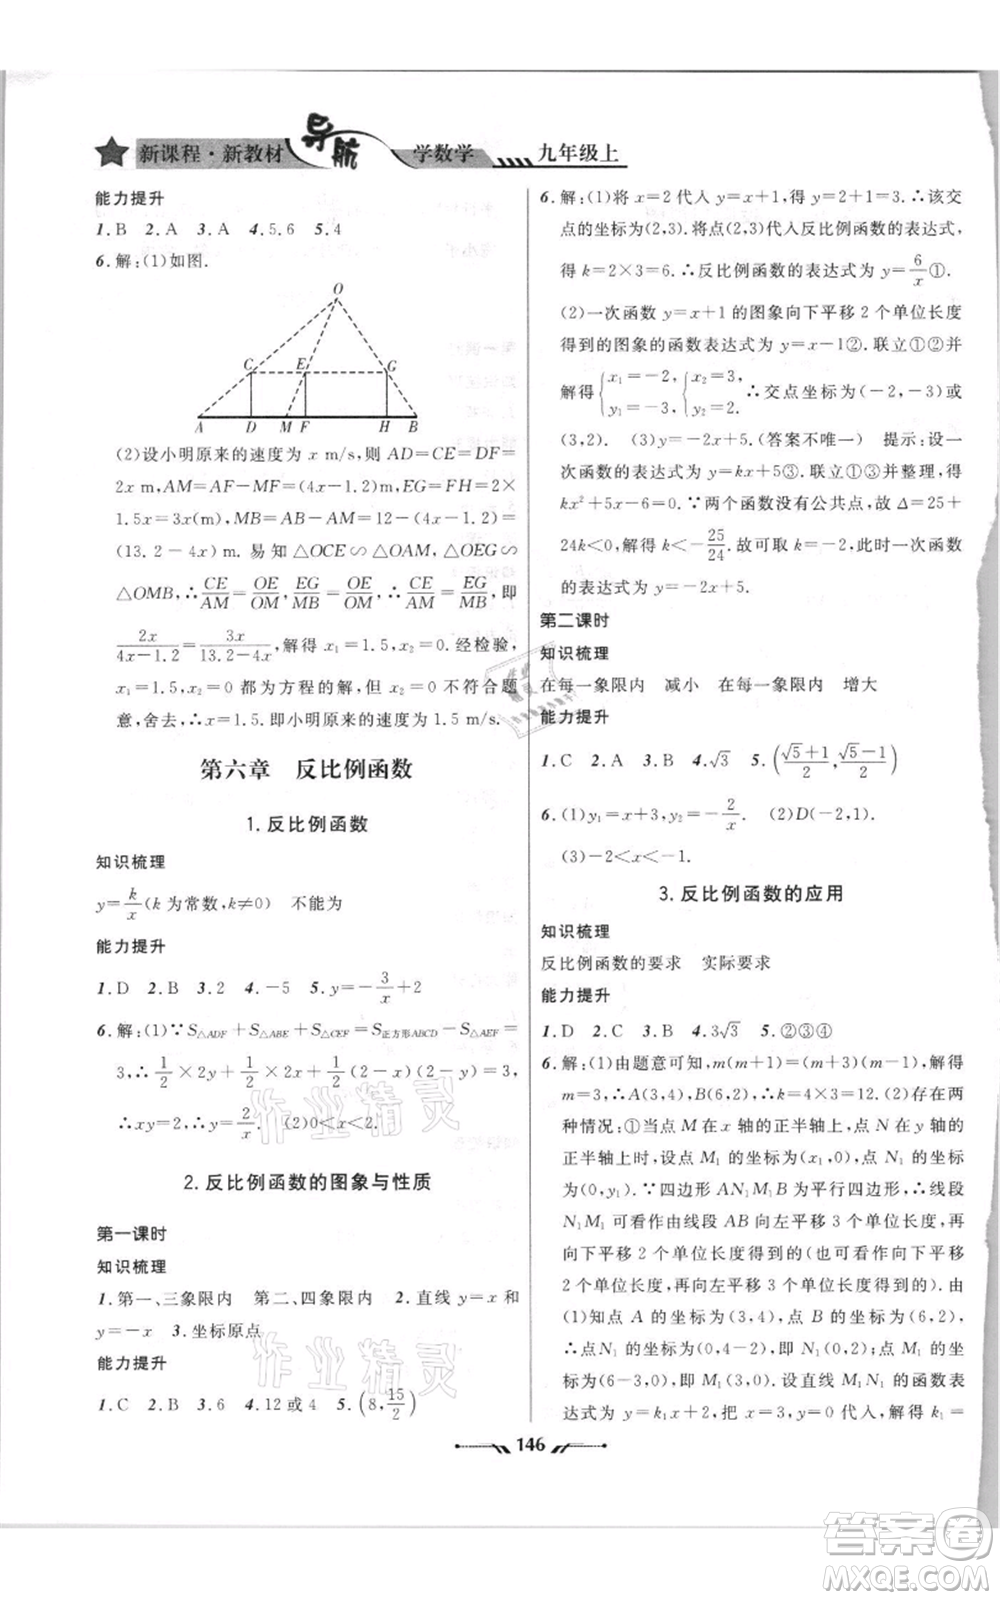 新课程·新教材 导航 学数学 九年级上
能力提升
1.B 2.A 3.A 4.5,6 5.4
6.解:(1)如图.
O
C E G
A D M F H B
(2)设小明原来的速度为 x m/s,则 AD=CE=DF=
2x m,AM=AF-MF=(4x-1.2)m,EG=FH=2×
1.5x=3x(m),MB=AB-AM=12-(4x-1.2)=
(13.2-4x)m. 易知 △OCE∽△OAM,△OEG∽
△OMB,∴CE/AM=OE/OM,EG/MB=OE/OM,∴CE/AM=EG/MB,即
2x/(4x-1.2)=3x/(13.2-4x),解得 x₁=1.5,x₂=0.经检验,
x₁=1.5,x₂=0 都为方程的解,但 x₂=0 不符合题
意,舍去,∴x=1.5.即小明原来的速度为 1.5 m/s.
第六章 反比例函数
1.反比例函数
知识梳理
y=k/x(k 为常数,k≠0) 不能为
能力提升
1.D 2.B 3.2 4.-5 5.y=-3/x+2
6.解:(1)∵S△ADF+S△ABE+S△CEF=S正方形ABCD-S△AEF=
3,∴1/2×2y+1/2×2x+1/2(2-x)(2-y)=3.
∴xy=2,y=2/x. (2)0<x<2.
2.反比例函数的图象与性质
第一课时
知识梳理
1.第一、三象限内 第二、四象限内 2.直线 y=x 和
y=-x 3.坐标原点
能力提升
1.C 2.B 3.6 4.12 或 4 5.(8,15/2)
6.解:(1)将 x=2 代入 y=x+1,得 y=2+1=3.∴该交
点的坐标为(2,3).将点(2,3)代入反比例函数的表达式,
得 k=2×3=6.∴反比例函数的表达式为 y=6/x①.
(2)一次函数 y=x+1 的图象向下平移 2 个单位长度
得到的图象的函数表达式为 y=x-1②.联立①②,并
解得{x₁=-2,y₁=-3,{x₂=3,y₂=2.∴交点坐标为(-2,-3)或
(3,2). (3)y=-2x+5.(答案不唯一) 提示:设一
次函数的表达式为 y=kx+5③.联立①③并整理,得
kx²+5x-6=0.∵两个函数没有公共点,故 Δ=25+
24k<0,解得 k<-25/24.故可取 k=-2,此时一次函数
的表达式为 y=-2x+5.
第二课时
知识梳理
在每一象限内 减小 在每一象限内 增大
能力提升
1.C 2.D 3.A 4.√3 5.((√5+1)/2,(√5-1)/2)
6.(1)y₁=x+3,y₂=-2/x. (2)D(-2,1).
(3)-2<x<-1.
3.反比例函数的应用
知识梳理
反比例函数的要求 实际要求
能力提升
1.D 2.C 3.B 4.3√3 5.②③④
6.解:(1)由题意可知,m(m+1)=(m+3)(m-1),解得
m=3,∴A(3,4),B(6,2),∴k=4×3=12. (2)存在两
种情况:①当点 M 在 x 轴的正半轴上,点 N 在 y 轴的
正半轴上时,设点 M₁ 的坐标为(x₁,0),点 N₁ 的坐标
为(0,y₁).∵四边形 AN₁M₁B 为平行四边形,∴线段
N₁M₁ 可看作由线段 AB 向左平移 3 个单位长度,再
向下平移 2 个单位长度得到的(也可看作向下平移
2 个单位长度,再向左平移 3 个单位长度得到的).由
(1)知点 A 的坐标为(3,4),点 B 的坐标为(6,2),
∴点 N₁ 的坐标为(0,4-2),即 N₁(0,2),点 M₁ 的坐标为
(6-3,0),即 M₁(3,0).设直线 M₁N₁ 的函数表
达式为 y=k₁x+2,把 x=3,y=0 代入,解得 k₁=
146
作业精灵
作业精灵
答案卷
MXQE.COM